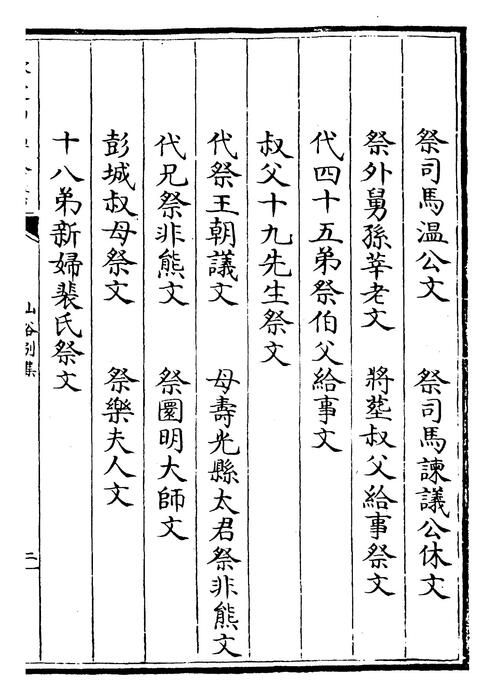 祭司馬温公文　祭司馬諫議公休文
祭外舅孫莘老文　將塟叔父給事祭文
代四十五弟祭伯父給事文
叔父十九先生祭文
代祭王朝議文　母壽光縣太君祭非熊文
代兄祭非熊文　祭圎明大師文
彭城叔母祭文　祭樂夫人文
十八弟新婦裴氏祭文
山谷别集